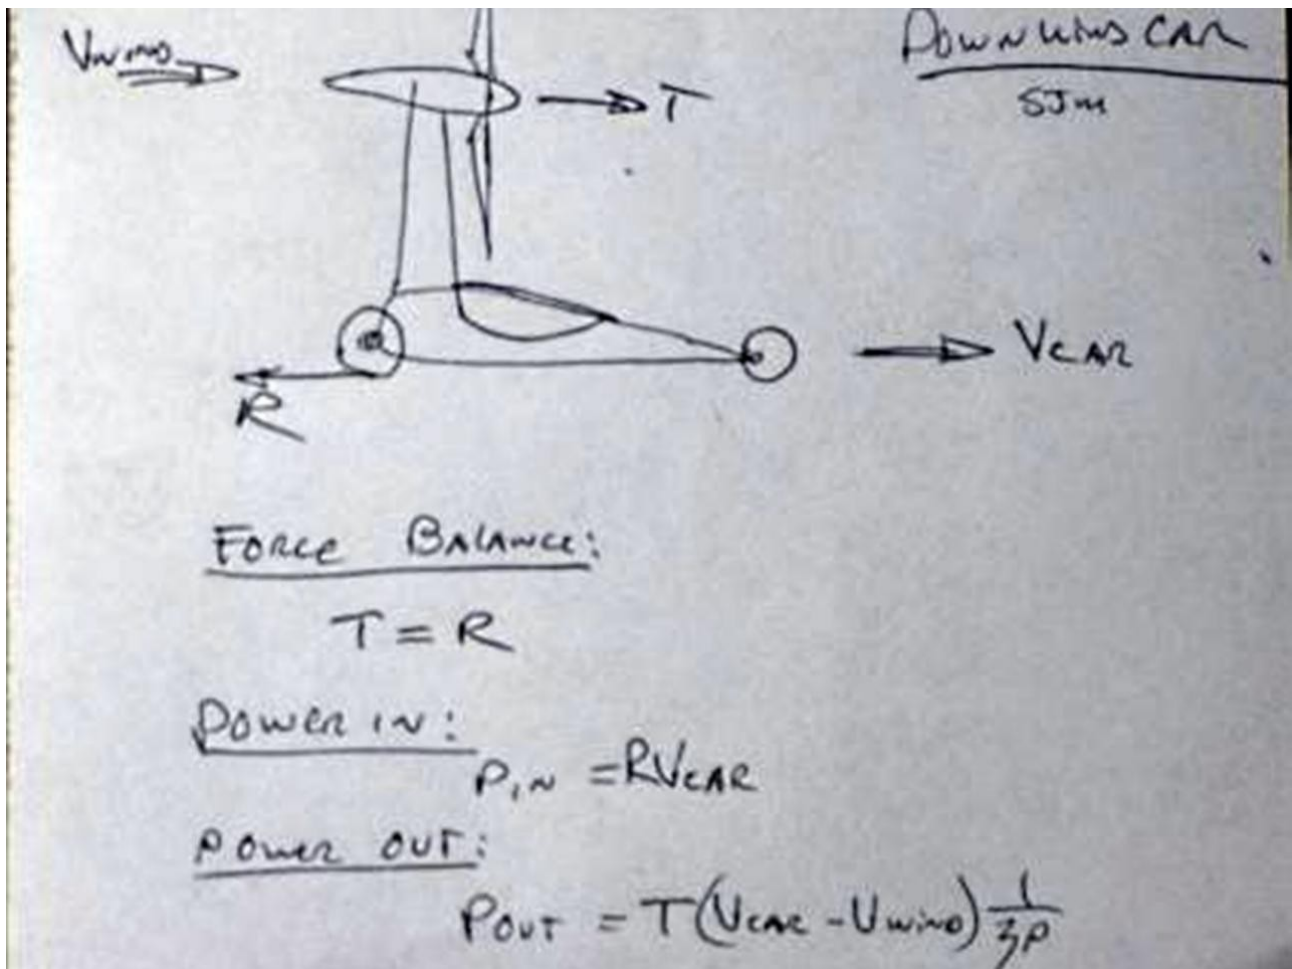 VWIND
DOWNWIND CAR
SJM
T
VCAR
R
FORCE BALANCE:
T = R
POWER IN:
PIN = RVCAR
POWER OUT:
POUT = T(VCAR - VWIND) 1/ηP